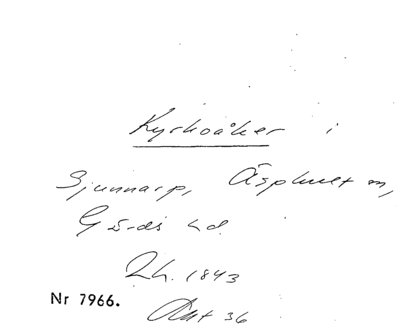 Kyrkoåker i
Sjunnarp, Äsphult m,
Gärds hd.
Lh. 1843
Nr 7966.
Akt 36